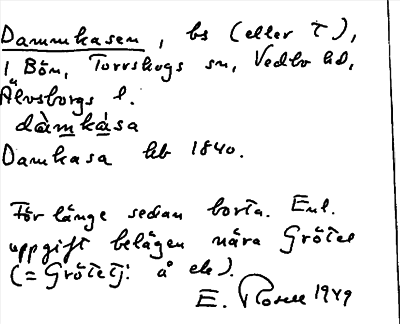 Dammkasen, bs (eller t),
i Bön, Torrskogs sn, Vedbo hd,
Älvsborgs l.
dàmkása
Damkasa hb 1840.
För länge sedan borta. Enl.
uppgift belägen nära Grötet
(= Grötetj: å ek).
E. Rosell 1949